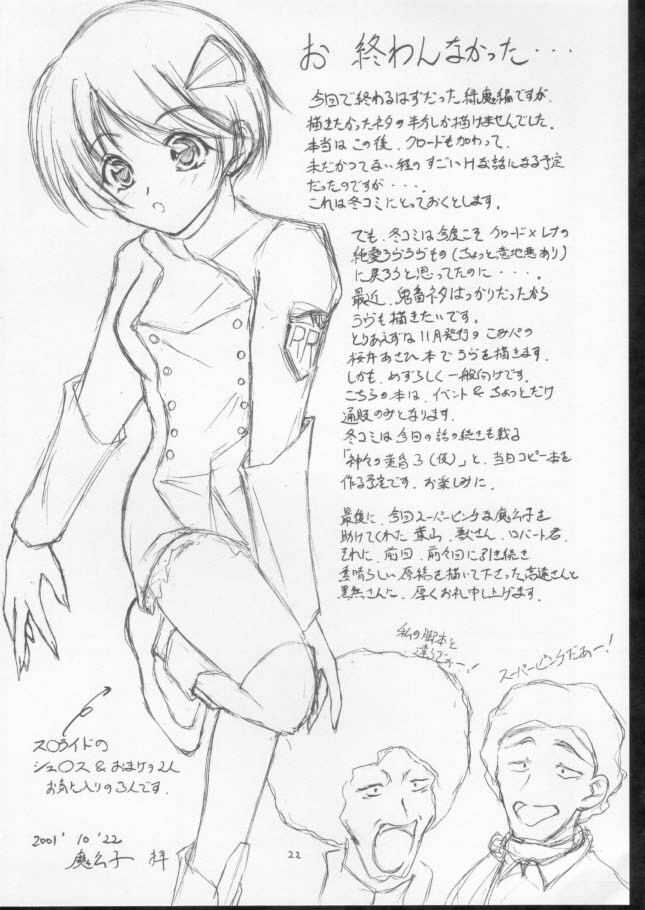 お 終わんなかった・・・
今回で終わるはずだった 緑魔編ですが、
描きたかったネタの半分しか描けませんでした。
本当は この後、クロードも加わって、
未だかつてない程の すごいHな話になる予定
だったのですが・・・・。
これは冬コミにとっておくとします。
でも、冬コミは今度こそ クロード×レナの
純愛ラヴラヴもの(ちょっと意地悪あり)
に戻ろうと思ってたのに・・・・。
最近、鬼畜ネタばっかりだったから
ラヴも描きたいです。
とりあえずな 11月発行の こみパの
桜井あさひ本で ラヴを描きます。
しかも、めずらしく一般向けです。
こちらの本は、イベント&ちょっとだけ
通販のみとなります。
冬コミは今回の話の続きも載る
「神々の黄昏3(仮)」と、当日コピー本を
作る予定です。お楽しみに。
最後に、今回スーパーピンチな魔公子を
助けてくれた 葉山、獣さん、ロバート君。
それに、前回、前々回に引き続き
素晴らしい原稿を描いて下さった高遠さんと
黒無さんに、厚くお礼申し上げます。
私の脚本と
違うでぁー!
スーパーピンチだぁー!
PP
スロライドの
シュ〇ス&おまけの2人
お気に入りの3人です。
2001' 10 '22
魔公子 拝
22